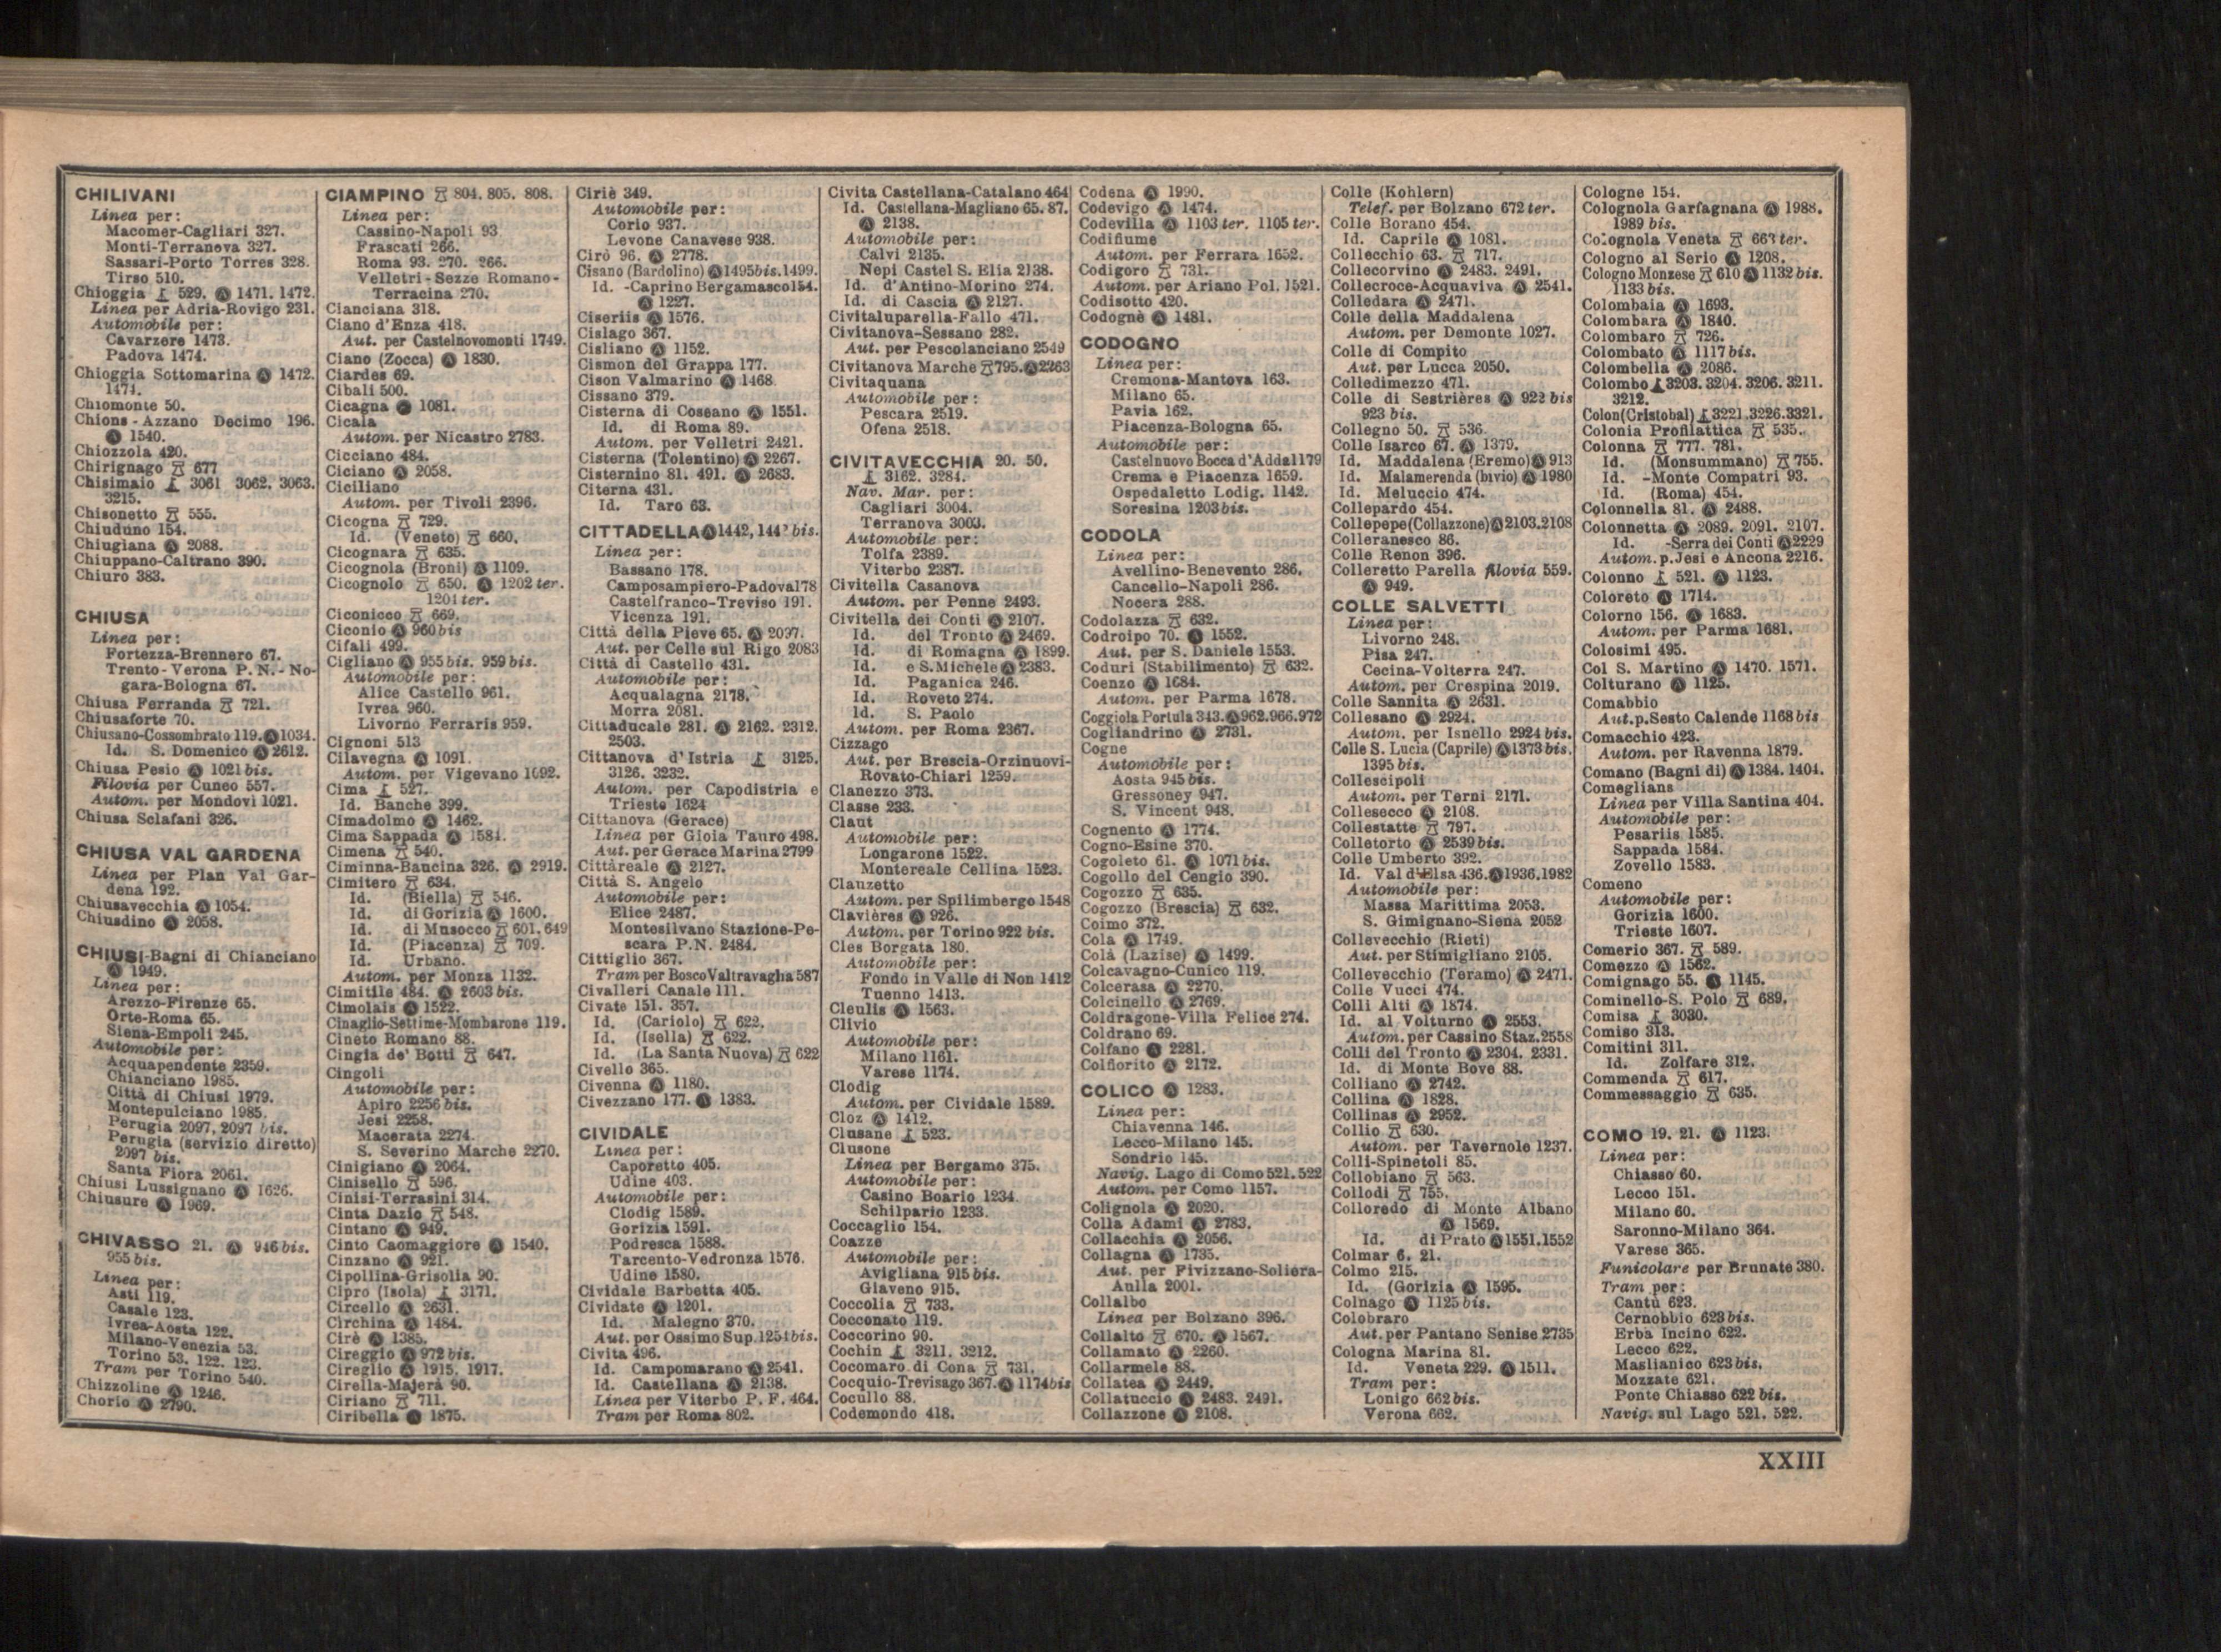 CHILIVANI
Linea per:
Macomer-Cagliari 327.
Monti-Terranova 327.
Sassari-Porto Torres 328.
Tirso 510.
Chioggia 529. Ⓐ 1471. 1472.
Linea per Adria-Rovigo 231.
Automobile per:
Cavarzere 1473.
Padova 1474.
Chioggia Sottomarina Ⓐ 1472.
1474.
Chiomonte 50.
Chions-Azzano Decimo 196.
Ⓐ 1540.
Chiozzola 420.
Chirignago 677
Chisimaio 3061 3062. 3063.
3215.
Chisonetto 555.
Chiuduno 154.
Chiugiana Ⓐ 2088.
Chiuppano-Caltrano 390.
Chiuro 383.
CHIUSA
Linea per:
Fortezza-Brennero 67.
Trento-Verona P. N.-No-
gara-Bologna 67.
Chiusa Ferranda 721.
Chiusaforte 70.
Chiusano-Cossombrato 119. Ⓐ 1034.
Id. S. Domenico Ⓐ 2612.
Chiusa Pesio Ⓐ 1021 bis.
Filovia per Cuneo 557.
Autom. per Mondovì 1021.
Chiusa Sclafani 326.
CHIUSA VAL GARDENA
Linea per Plan Val Gar-
dena 192.
Chiusavecchia Ⓐ 1054.
Chiusdino Ⓐ 2058.
CHIUSI-Bagni di Chianciano
Ⓐ 1949.
Linea per:
Arezzo-Firenze 65.
Orte-Roma 65.
Siena-Empoli 245.
Automobile per:
Acquapendente 2359.
Chianciano 1985.
Città di Chiusi 1979.
Montepulciano 1985.
Perugia 2097, 2097 bis.
Perugia (servizio diretto)
2097 bis.
Santa Fiora 2061.
Chiusi Lussignano Ⓐ 1626.
Chiusure Ⓐ 1969.
CHIVASSO 21. Ⓐ 946 bis.
955 bis.
Linea per:
Asti 119.
Casale 123.
Ivrea-Aosta 122.
Milano-Venezia 53.
Torino 53. 122. 123.
Tram per Torino 540.
Chizzoline Ⓐ 1246.
Chorio Ⓐ 2790.
CIAMPINO 804. 805. 808.
Linea per:
Cassino-Napoli 93
Frascati 266.
Roma 93. 270. 266.
Velletri-Sezze Romano-
Terracina 270.
Cianciana 318.
Ciano d'Enza 418.
Aut. per Castelnovomonti 1749.
Ciano (Zocca) Ⓐ 1830.
Ciardes 69.
Cibali 500.
Cicagna Ⓐ 1081.
Cicala
Autom. per Nicastro 2783.
Cicciano 484.
Ciciano Ⓐ 2058.
Ciciliano
Autom. per Tivoli 2396.
Cicogna 729.
Id. (Veneto) 660.
Cicognara 635.
Cicognola (Broni) Ⓐ 1109.
Cicognolo 650. Ⓐ 1202 ter.
1204 ter.
Ciconicco 669.
Ciconio Ⓐ 960 bis
Cifali 499.
Cigliano Ⓐ 955 bis. 959 bis.
Automobile per:
Alice Castello 961.
Ivrea 960.
Livorno Ferraris 959.
Cignoni 513
Cilavegna Ⓐ 1091.
Autom. per Vigevano 1092.
Cima 527.
Id. Banche 399.
Cimadolmo Ⓐ 1462.
Cima Sappada Ⓐ 1584.
Cimena 540.
Ciminna-Baucina 326. Ⓐ 2919.
Cimitero 634.
Id. (Biella) 546.
Id. di Gorizia Ⓐ 1600.
Id. di Musocco 601. 649
Id. (Piacenza) 709.
Id. Urbano.
Autom. per Monza 1132.
Cimitile 484. Ⓐ 2603 bis.
Cimolais Ⓐ 1522.
Cinaglio-Settime-Mombarone 119.
Cineto Romano 88.
Cingia de' Botti 647.
Cingoli
Automobile per:
Apiro 2256 bis.
Jesi 2258.
Macerata 2274.
S. Severino Marche 2270.
Cinigiano Ⓐ 2064.
Cinisello 596.
Cinisi-Terrasini 314.
Cinta Dazio 548.
Cintano Ⓐ 949.
Cinto Caomaggiore Ⓐ 1540.
Cinzano Ⓐ 921.
Cipollina-Grisolia 90.
Cipro (Isola) 3171.
Circello Ⓐ 2631.
Circhina Ⓐ 1484.
Cirè Ⓐ 1385.
Cireggio Ⓐ 972 bis.
Cireglio Ⓐ 1915. 1917.
Cirella-Majerà 90.
Ciriano 711.
Ciribella Ⓐ 1875.
Ciriè 349.
Automobile per:
Corio 937.
Levone Canavese 938.
Cirò 96. Ⓐ 2778.
Cisano (Bardolino) Ⓐ 1495 bis. 1499.
Id. -Caprino Bergamasco 154.
Ⓐ 1227.
Ciseriis Ⓐ 1576.
Cislago 367.
Cisliano Ⓐ 1152.
Cismon del Grappa 177.
Cison Valmarino Ⓐ 1468
Cissano 379.
Cisterna di Coseano Ⓐ 1551.
Id. di Roma 89.
Autom. per Velletri 2421.
Cisterna (Tolentino) Ⓐ 2267.
Cisternino 81. 491. Ⓐ 2683.
Citerna 431.
Id. Taro 63.
CITTADELLA Ⓐ 1442, 144 bis.
Linea per:
Bassano 178.
Camposampiero-Padova 178
Castelfranco-Treviso 191.
Vicenza 191.
Città della Pieve 65. Ⓐ 2097.
Aut. per Celle sul Rigo 2083
Città di Castello 431.
Automobile per:
Acqualagna 2178.
Morra 2081.
Cittaducale 281. Ⓐ 2162. 2312.
2503.
Cittanova d'Istria 3125.
3126. 3232.
Autom. per Capodistria e
Trieste 1624
Cittanova (Gerace)
Linea per Gioia Tauro 498.
Aut. per Gerace Marina 2799
Cittàreale Ⓐ 2127.
Città S. Angelo
Automobile per:
Elice 2487.
Montesilvano Stazione-Pe-
scara P.N. 2484.
Cittiglio 367.
Tram per Bosco Valtravaglia 587
Civalleri Canale 111.
Civate 151. 357.
Id. (Cariolo) 622.
Id. (Isella) 622.
Id. (La Santa Nuova) 622
Civello 365.
Civenna Ⓐ 1180.
Civezzano 177. Ⓐ 1383.
CIVIDALE
Linea per:
Caporetto 405.
Udine 403.
Automobile per:
Clodig 1589.
Gorizia 1591.
Podresca 1588.
Tarcento-Vedronza 1576.
Udine 1580.
Cividale Barbetta 405.
Cividate Ⓐ 1201.
Id. Malegno 370.
Aut. per Ossimo Sup. 1254 bis.
Civita 496.
Id. Campomarano Ⓐ 2541.
Id. Castellana Ⓐ 2138.
Linea per Viterbo P. F. 464.
Tram per Roma 802.
Civita Castellana-Catalano 464
Id. Castellana-Magliano 65. 87.
Ⓐ 2138.
Automobile per:
Calvi 2135.
Nepi Castel S. Elia 2138.
Id. d'Antino-Morino 274.
Id. di Cascia Ⓐ 2127.
Civitaluparella-Fallo 471.
Civitanova-Sessano 282.
Aut. per Pescolanciano 2549
Civitanova Marche 795. Ⓐ 2263
Civitaquana
Automobile per:
Pescara 2519.
Ofena 2518.
CIVITAVECCHIA 20. 50.
3162. 3284.
Nav. Mar. per:
Cagliari 3004.
Terranova 3003.
Automobile per:
Tolfa 2389.
Viterbo 2387.
Civitella Casanova
Autom. per Penne 2493.
Civitella dei Conti Ⓐ 2107.
Id. del Tronto Ⓐ 2469.
Id. di Romagna Ⓐ 1899.
Id. e S. Michele Ⓐ 2383.
Id. Paganica 246.
Id. Roveto 274.
Id. S. Paolo
Autom. per Roma 2367.
Cizzago
Aut. per Brescia-Orzinuovi-
Rovato-Chiari 1259.
Clanezzo 373.
Classe 233.
Claut
Automobile per:
Longarone 1522.
Montereale Cellina 1523.
Clauzetto
Autom. per Spilimbergo 1548
Clavières Ⓐ 926.
Autom. per Torino 922 bis.
Cles Borgata 180.
Automobile per:
Fondo in Valle di Non 1412
Tuenno 1413.
Cleulis Ⓐ 1563.
Clivio
Automobile per:
Milano 1161.
Varese 1174.
Clodig
Autom. per Cividale 1589.
Cloz Ⓐ 1412.
Clusane 523.
Clusone
Linea per Bergamo 375.
Automobile per:
Casino Boario 1234.
Schilpario 1233.
Coccaglio 154.
Coazze
Automobile per:
Avigliana 915 bis.
Giaveno 915.
Coccolia 733.
Cocconato 119.
Coccorino 90.
Cochin 3211. 3212.
Cocomaro di Cona 731.
Cocquio-Trevisago 367. Ⓐ 1174 bis
Cocullo 88.
Codemondo 418.
Codena Ⓐ 1990.
Codevigo Ⓐ 1474.
Codevilla Ⓐ 1103 ter. 1105 ter.
Codifiume
Autom. per Ferrara 1652.
Codigoro 731.
Autom. per Ariano Pol. 1521.
Codisotto 420.
Codognè Ⓐ 1481.
CODOGNO
Linea per:
Cremona-Mantova 163.
Milano 65.
Pavia 162.
Piacenza-Bologna 65.
Automobile per:
Castelnuovo Bocca d'Adda 1179
Crema e Piacenza 1659.
Ospedaletto Lodig. 1142.
Soresina 1203 bis.
CODOLA
Linea per:
Avellino-Benevento 286.
Cancello-Napoli 286.
Nocera 288.
Codolazza 632.
Codroipo 70. Ⓐ 1552.
Aut. per S. Daniele 1553.
Coduri (Stabilimento) 632.
Coenzo Ⓐ 1684.
Autom. per Parma 1678.
Coggiola Portula 343. Ⓐ 962. 966. 972
Cogliandrino Ⓐ 2731.
Cogne
Automobile per:
Aosta 945 bis.
Gressoney 947.
S. Vincent 948.
Cognento Ⓐ 1774.
Cogno-Esine 370.
Cogoleto 61. Ⓐ 1071 bis.
Cogollo del Cengio 390.
Cogozzo 635.
Cogozzo (Brescia) 632.
Coimo 372.
Cola Ⓐ 1749.
Colà (Lazise) Ⓐ 1499.
Colcavagno-Cunico 119.
Colcerasa Ⓐ 2270.
Colcinello Ⓐ 2769.
Coldragone-Villa Felice 274.
Coldrano 69.
Colfano Ⓐ 2281.
Colfiorito Ⓐ 2172.
COLICO Ⓐ 1283.
Linea per:
Chiavenna 146.
Lecco-Milano 145.
Sondrio 145.
Navig. Lago di Como 521. 522
Autom. per Como 1157.
Colignola Ⓐ 2020.
Colla Adami Ⓐ 2783.
Collacchia Ⓐ 2056.
Collagna Ⓐ 1735.
Aut. per Fivizzano-Soliera-
Aulla 2001.
Collalbo
Linea per Bolzano 396.
Collalto 670. Ⓐ 1567.
Collamato Ⓐ 2260.
Collarmele 88.
Collatea Ⓐ 2449.
Collatuccio Ⓐ 2483. 2491.
Collazzone Ⓐ 2108.
Colle (Kohlern)
Telef. per Bolzano 672 ter.
Colle Borano 454.
Id. Caprile Ⓐ 1081.
Collecchio 63. 717.
Collecorvino Ⓐ 2483. 2491.
Collecroce-Acquaviva Ⓐ 2541.
Colledara Ⓐ 2471.
Colle della Maddalena
Autom. per Demonte 1027.
Colle di Compito
Aut. per Lucca 2050.
Colledimezzo 471.
Colle di Sestrières Ⓐ 922 bis
923 bis.
Collegno 50. 536
Colle Isarco 67. Ⓐ 1379.
Id. Maddalena (Eremo) Ⓐ 913
Id. Malamerenda (bivio) Ⓐ 1980
Id. Meluccio 474.
Collepardo 454.
Collepepe (Collazzone) Ⓐ 2103. 2108
Colleranesco 86.
Colle Renon 396.
Colleretto Parella filovia 559.
Ⓐ 949.
COLLE SALVETTI
Linea per:
Livorno 248.
Pisa 247.
Cecina-Volterra 247.
Autom. per Crespina 2019.
Colle Sannita Ⓐ 2631.
Collesano Ⓐ 2924.
Autom. per Isnello 2924 bis.
Colle S. Lucia (Caprile) Ⓐ 1373 bis.
1395 bis.
Collescipoli
Autom. per Terni 2171.
Collesecco Ⓐ 2108.
Collestatte 797.
Colletorto Ⓐ 2539 bis.
Colle Umberto 392.
Id. Val d'Elsa 436. Ⓐ 1936. 1982
Automobile per:
Massa Marittima 2053.
S. Gimignano-Siena 2052
Collevecchio (Rieti)
Aut. per Stimigliano 2105.
Collevecchio (Teramo) Ⓐ 2471.
Colle Vucci 474.
Colli Alti Ⓐ 1874.
Id. al Volturno Ⓐ 2553.
Autom. per Cassino Staz. 2558
Colli del Tronto Ⓐ 2304. 2331.
Id. di Monte Bove 88.
Colliano Ⓐ 2742.
Collina Ⓐ 1828.
Collinas Ⓐ 2952.
Collio 630.
Autom. per Tavernole 1237.
Colli-Spinetoli 85.
Collobiano 563.
Collodi 755.
Colloredo di Monte Albano
Ⓐ 1569.
Id. di Prato Ⓐ 1551. 1552
Colmar 6. 21.
Colmo 215.
Id. (Gorizia Ⓐ 1595.
Colnago Ⓐ 1125 bis.
Colobraro
Aut. per Pantano Senise 2735
Cologna Marina 81.
Id. Veneta 229. Ⓐ 1511.
Tram per:
Lonigo 662 bis.
Verona 662.
Cologne 154.
Colognola Garfagnana Ⓐ 1988.
1989 bis.
Colognola Veneta 663 ter.
Cologno al Serio Ⓐ 1208.
Cologno Monzese 610 Ⓐ 1132 bis.
1133 bis.
Colombaia Ⓐ 1693.
Colombara Ⓐ 1840.
Colombaro 726.
Colombato Ⓐ 1117 bis.
Colombella Ⓐ 2086.
Colombo 3203. 3204. 3206. 3211.
3212.
Colon (Cristobal) 3221. 3226. 3321.
Colonia Profilattica 535.
Colonna 777. 781.
Id. (Monsummano) 755.
Id. -Monte Compatri 93.
Id. (Roma) 454.
Colonnella 81. Ⓐ 2488.
Colonnetta Ⓐ 2089. 2091. 2107.
Id. -Serra dei Conti Ⓐ 2229
Autom. p. Jesi e Ancona 2216.
Colonno 521. Ⓐ 1123.
Coloreto Ⓐ 1714.
Colorno 156. Ⓐ 1683.
Autom. per Parma 1681.
Colosimi 495.
Col S. Martino Ⓐ 1470. 1571.
Colturano Ⓐ 1125.
Comabbio
Aut. p. Sesto Calende 1168 bis
Comacchio 423.
Autom. per Ravenna 1879.
Comano (Bagni di) Ⓐ 1384. 1404.
Comeglians
Linea per Villa Santina 404.
Automobile per:
Pesariis 1585.
Sappada 1584.
Zovello 1583.
Comeno
Automobile per:
Gorizia 1600.
Trieste 1607.
Comerio 367. 589.
Comezzo Ⓐ 1562.
Comignago 55. Ⓐ 1145.
Cominello-S. Polo 689.
Comisa 3030.
Comiso 313.
Comitini 311.
Id. Zolfare 312.
Commenda 617.
Commessaggio 635.
COMO 19. 21. Ⓐ 1123.
Linea per:
Chiasso 60.
Lecco 151.
Milano 60.
Saronno-Milano 364.
Varese 365.
Funicolare per Brunate 380.
Tram per:
Cantù 623.
Cernobbio 623 bis.
Erba Incino 622.
Lecco 622.
Maslianico 623 bis.
Mozzate 621.
Ponte Chiasso 622 bis.
Navig. sul Lago 521. 522.
XXIII